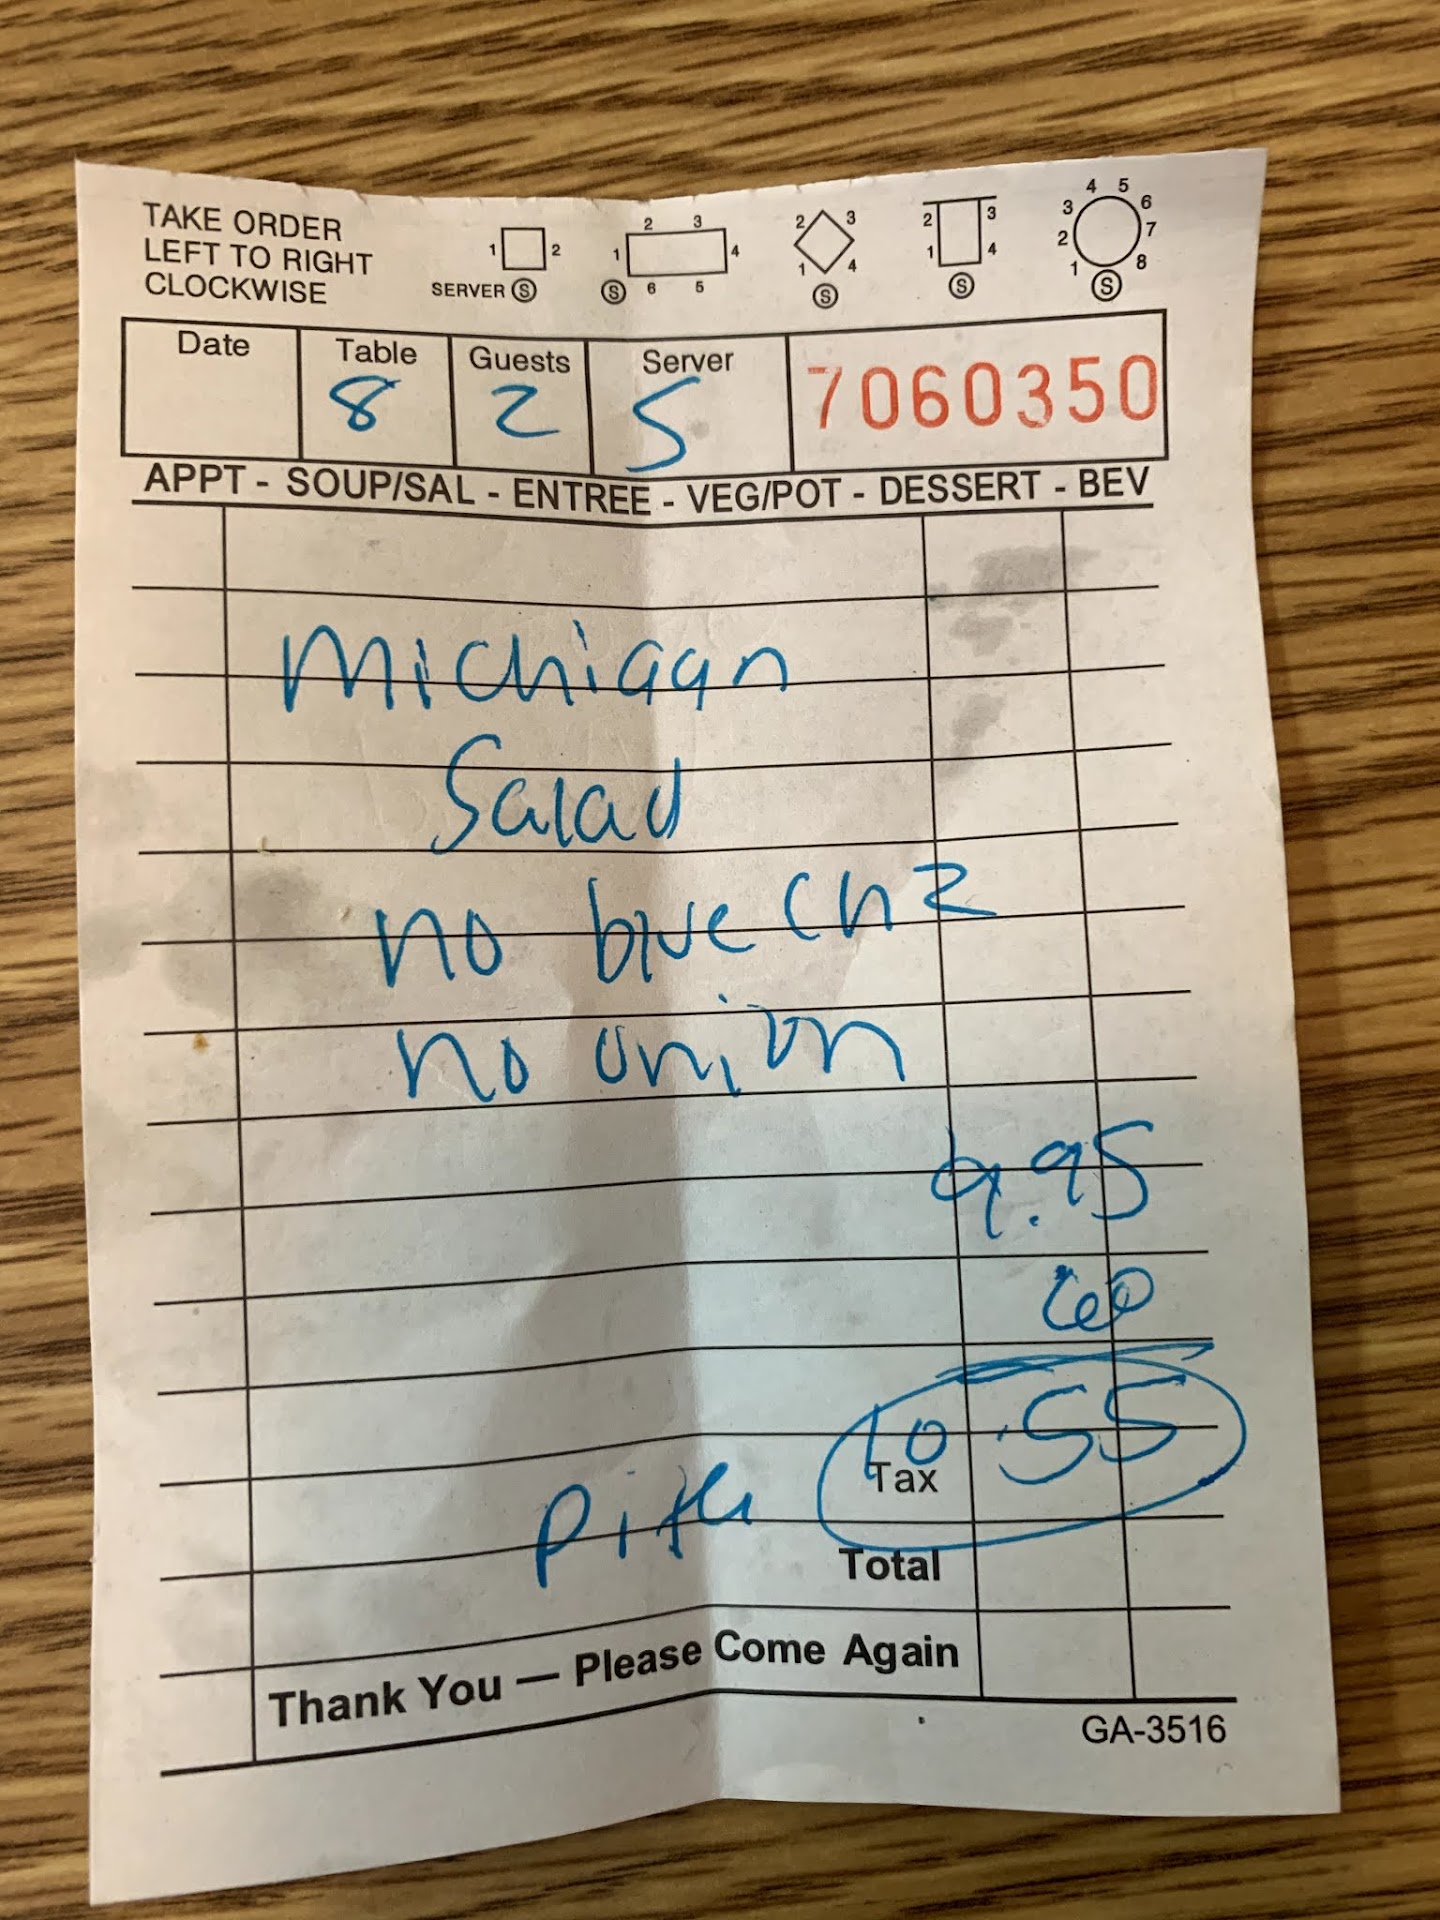 TAKE ORDER
LEFT TO RIGHT
CLOCKWISE
1 2
SERVER S
1 2 3 4 5 6 S
1 2 3 4 S
1 2 3 4 S
1 2 3 4 5 6 7 8 S
Date Table Guests Server 7060350
8 2 S
APPT - SOUP/SAL - ENTREE - VEG/POT - DESSERT - BEV
Michigan
Salad
no blue chz
no onion
9.95
60
10.55
Tax
Total
Thank You — Please Come Again
GA-3516